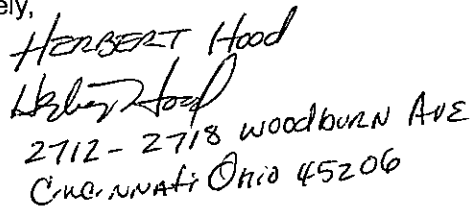 ely,
HERBERT Hood
Herbert Hood
2712 - 2718 woodburn AVE
Cincinnati Ohio 45206